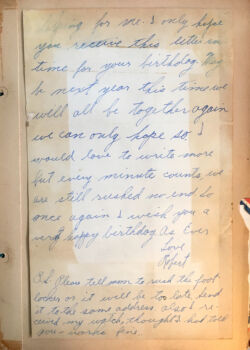 for me. I only hope
you receive this letter in
time for your birthday. May
be next year this time we
will all be together again
we can only hope so. I
would love to write more
but every minute counts, we
are still rushed no end so
once again I wish you a
very happy birthday. As Ever
Love
Robert
P.S. Please tell mom to send the foot
locker or it will be too late, send
it to the same address. also I re-
ceived my watch, thought I had told
you - works fine.